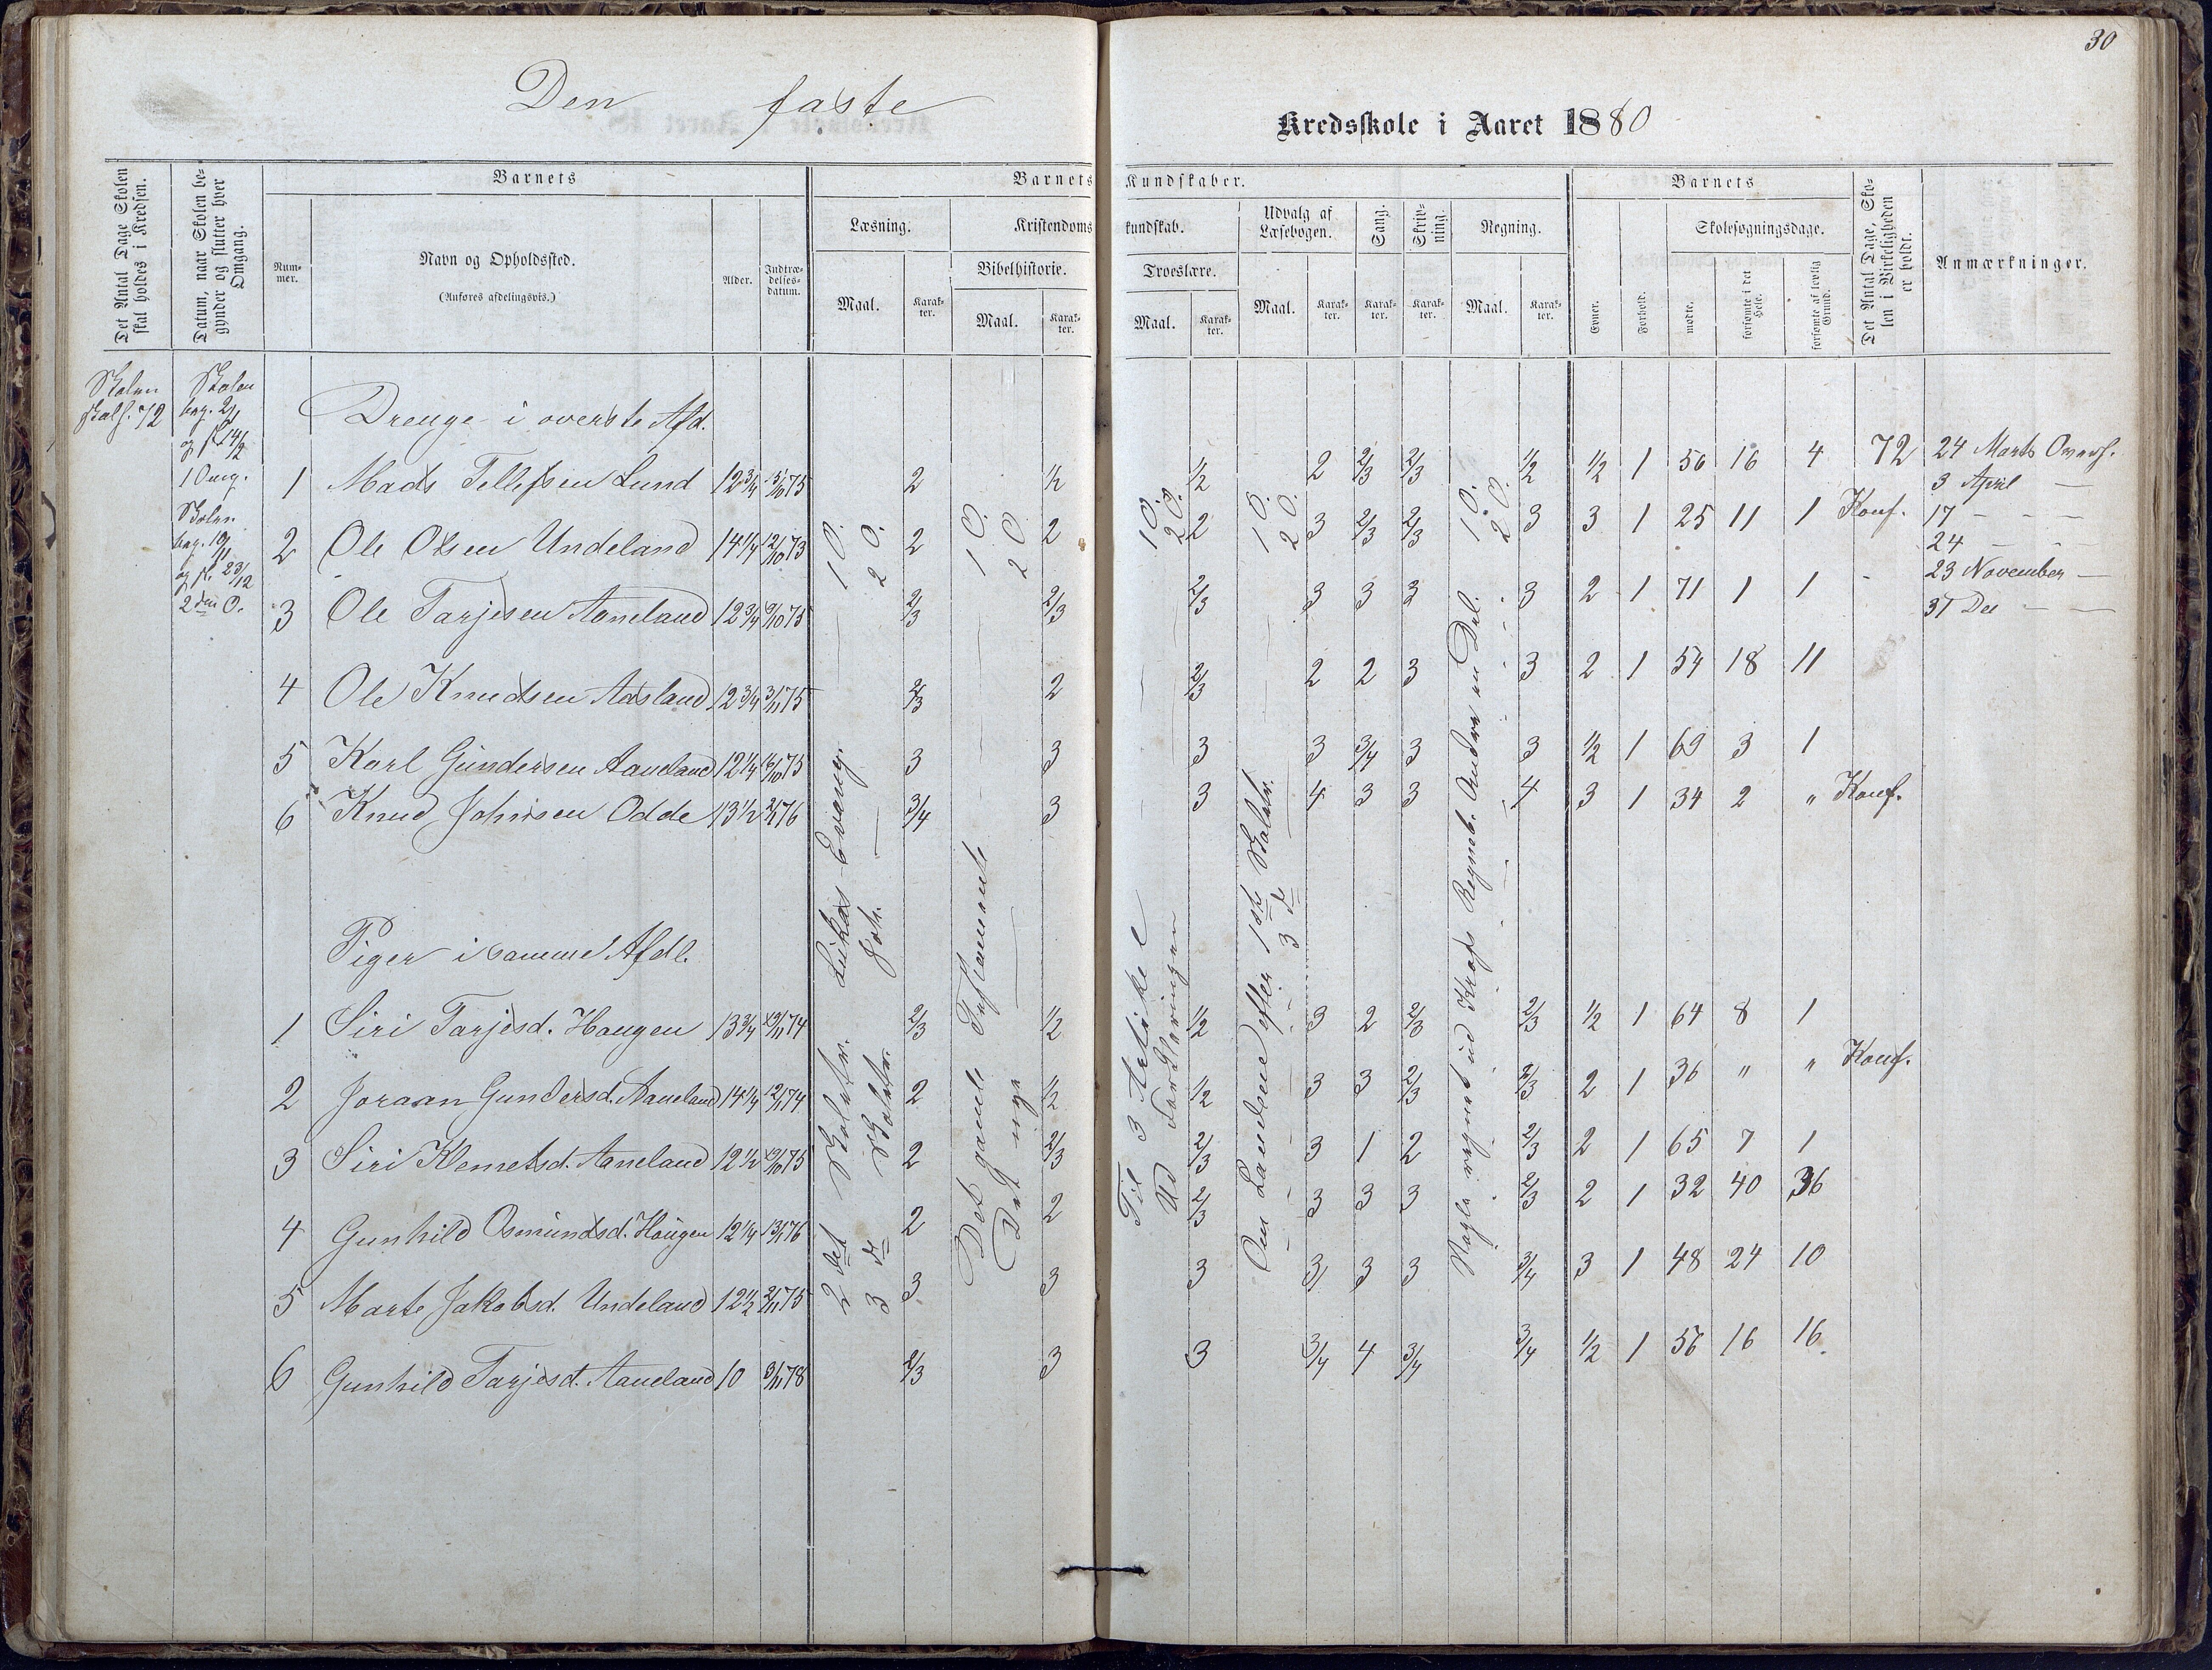 30
Den faste
Kredsskole i Aaret 1880
Det Antal Dage Skolen skal holdes i Kredsen.
Datum, naar Skolen begynder og slutter hver Omgang.
Barnets
Nummer.
Navn og Opholdssted.
(Anføres afdelingsvis.)
Alder.
Indtrædelsesdatum.
Barnets Kundskaber.
Læsning.
Maal.
Karakter.
Kristendomskundskab.
Bibelhistorie.
Maal.
Karakter.
Troeslære.
Maal.
Karakter.
Udvalg af Læsebogen.
Maal.
Karakter.
Sang.
Karakter.
Skrivning.
Karakter.
Regning.
Maal.
Karakter.
Barnets
Evner.
Forhold.
Skolesøgningsdage.
mødte.
forsømte i det Hele.
forsømte af lovlig Grund.
Det Antal Dage, Skolen i Virkeligheden er holdt.
Anmærkninger.
Skolen
skal h. 72
Skolen
beg. 2/1
og sl. 14/2
1 Omg.
Skolen
beg. 19/11
og sl. 23/12
2den O.
Drenge i øverste Afd.
1 Mads Tellefsen Lund 12 3/4 15/10 75 2 1/2 1/2 2 2/3 2/3 1/2 1/2 1 56 16 4 72
2 Ole Olsen Undeland 14 1/4 12/10 73 2 2 2 3 2/3 2/3 3 3 1 25 11 1 Konf.
3 Ole Tarjesen Aaneland 12 3/4 9/10 75 2/3 2/3 2/3 3 3 3 3 2 1 71 1 1
4 Ole Knudsen Aasland 12 3/4 3/11 75 2/3 2 2/3 2 2 3 3 2 1 54 18 11
5 Karl Gundersen Aaneland 12 1/4 16/10 75 3 3 3 3 3/4 3 3 1/2 1 69 3 1
6 Knud Johnsen Odde 13 1/2 2/1 76 3/4 3 3 4 3 3 4 3 1 34 2 " Konf.
Piger i samme Afdl.
1 Siri Tarjesd. Haugen 13 3/4 19/11 74 2/3 1/2 1/2 3 2 2/3 2/3 1/2 1 64 8 1
2 Joraan Gundersd. Aaneland 14 1/4 12/11 74 2 1/2 1/2 3 3 2/3 2/3 2 1 36 " " Konf.
3 Siri Klemetsd. Aaneland 12 1/2 19/10 75 2 2/3 2/3 3 1 2 2/3 2 1 65 7 1
4 Gunhild Osmundsd. Haugen 12 1/4 13/1 76 2 2 2/3 3 3 3 2/3 2 1 32 40 36
5 Marte Jakobsd. Undeland 12 1/2 2/11 75 3 3 3 3 3 3 3/4 3 1 48 24 10
6 Gunhild Tarjesd. Aaneland 10 9/11 78 2/3 3 3 3/4 4 3/4 3/4 1/2 1 56 16 16
1 O.
2 O.
2det Skoletr. Lukas Evang.
3die Skoletr. Joh. —
1 O.
2 O
Det gamle Testamente
Det nye —
1 O.
2 O.
Til 3 Artikel
Ud Forklaringen
1 O.
2 O.
Om Landene efter 1ste Skoletr.
3d
1 O.
2 O.
Nogle regnet ud Krafs Regneb. Andre en Del.
24 Marts Overh.
3 April —
17 — —
24 — —
23 November —
31 Dec — —